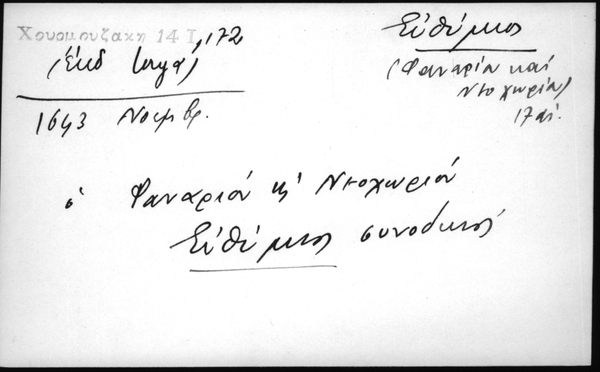 Χουρμουζάκη 14 Ι, 172
(Έκδ
1643 Νοεμβρ.
Εὐθύμιος
(Φαναρίου καὶ
Νεοχωρίου)
17 αἰ.
ὁ Φαναρίου κ' Νεοχωρίου
Εὐθύμιος συνοδικός